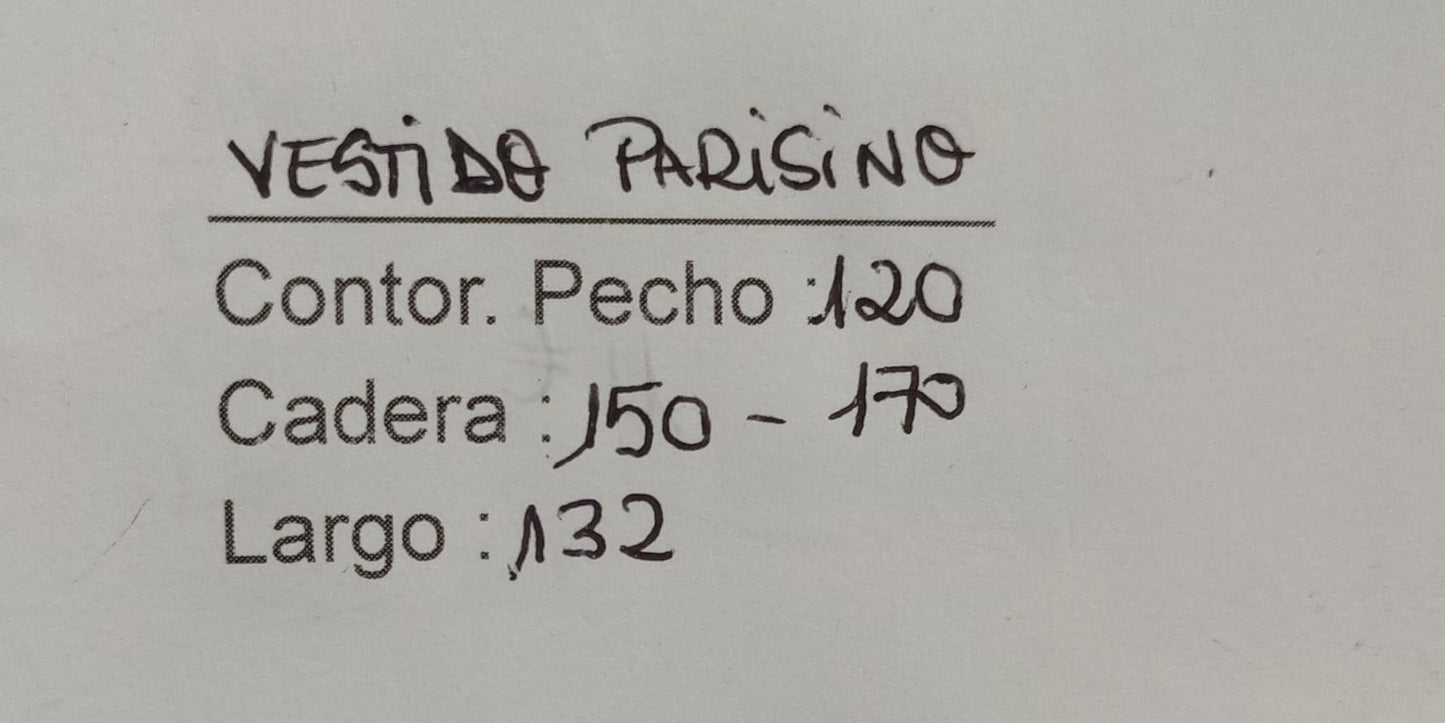 VESTIDO PARISINO
Contor. Pecho : 120
Cadera : 150 - 170
Largo : 132